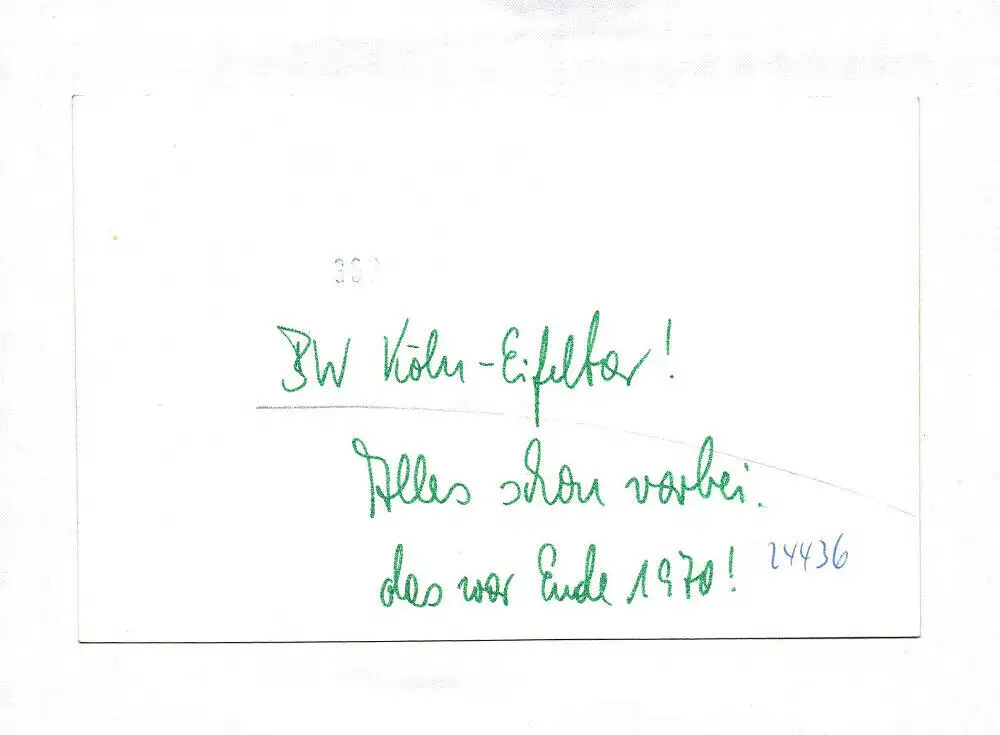 307
BW Köln-Eifeltor!
Alles schon vorbei.
das war Ende 1970!
24436